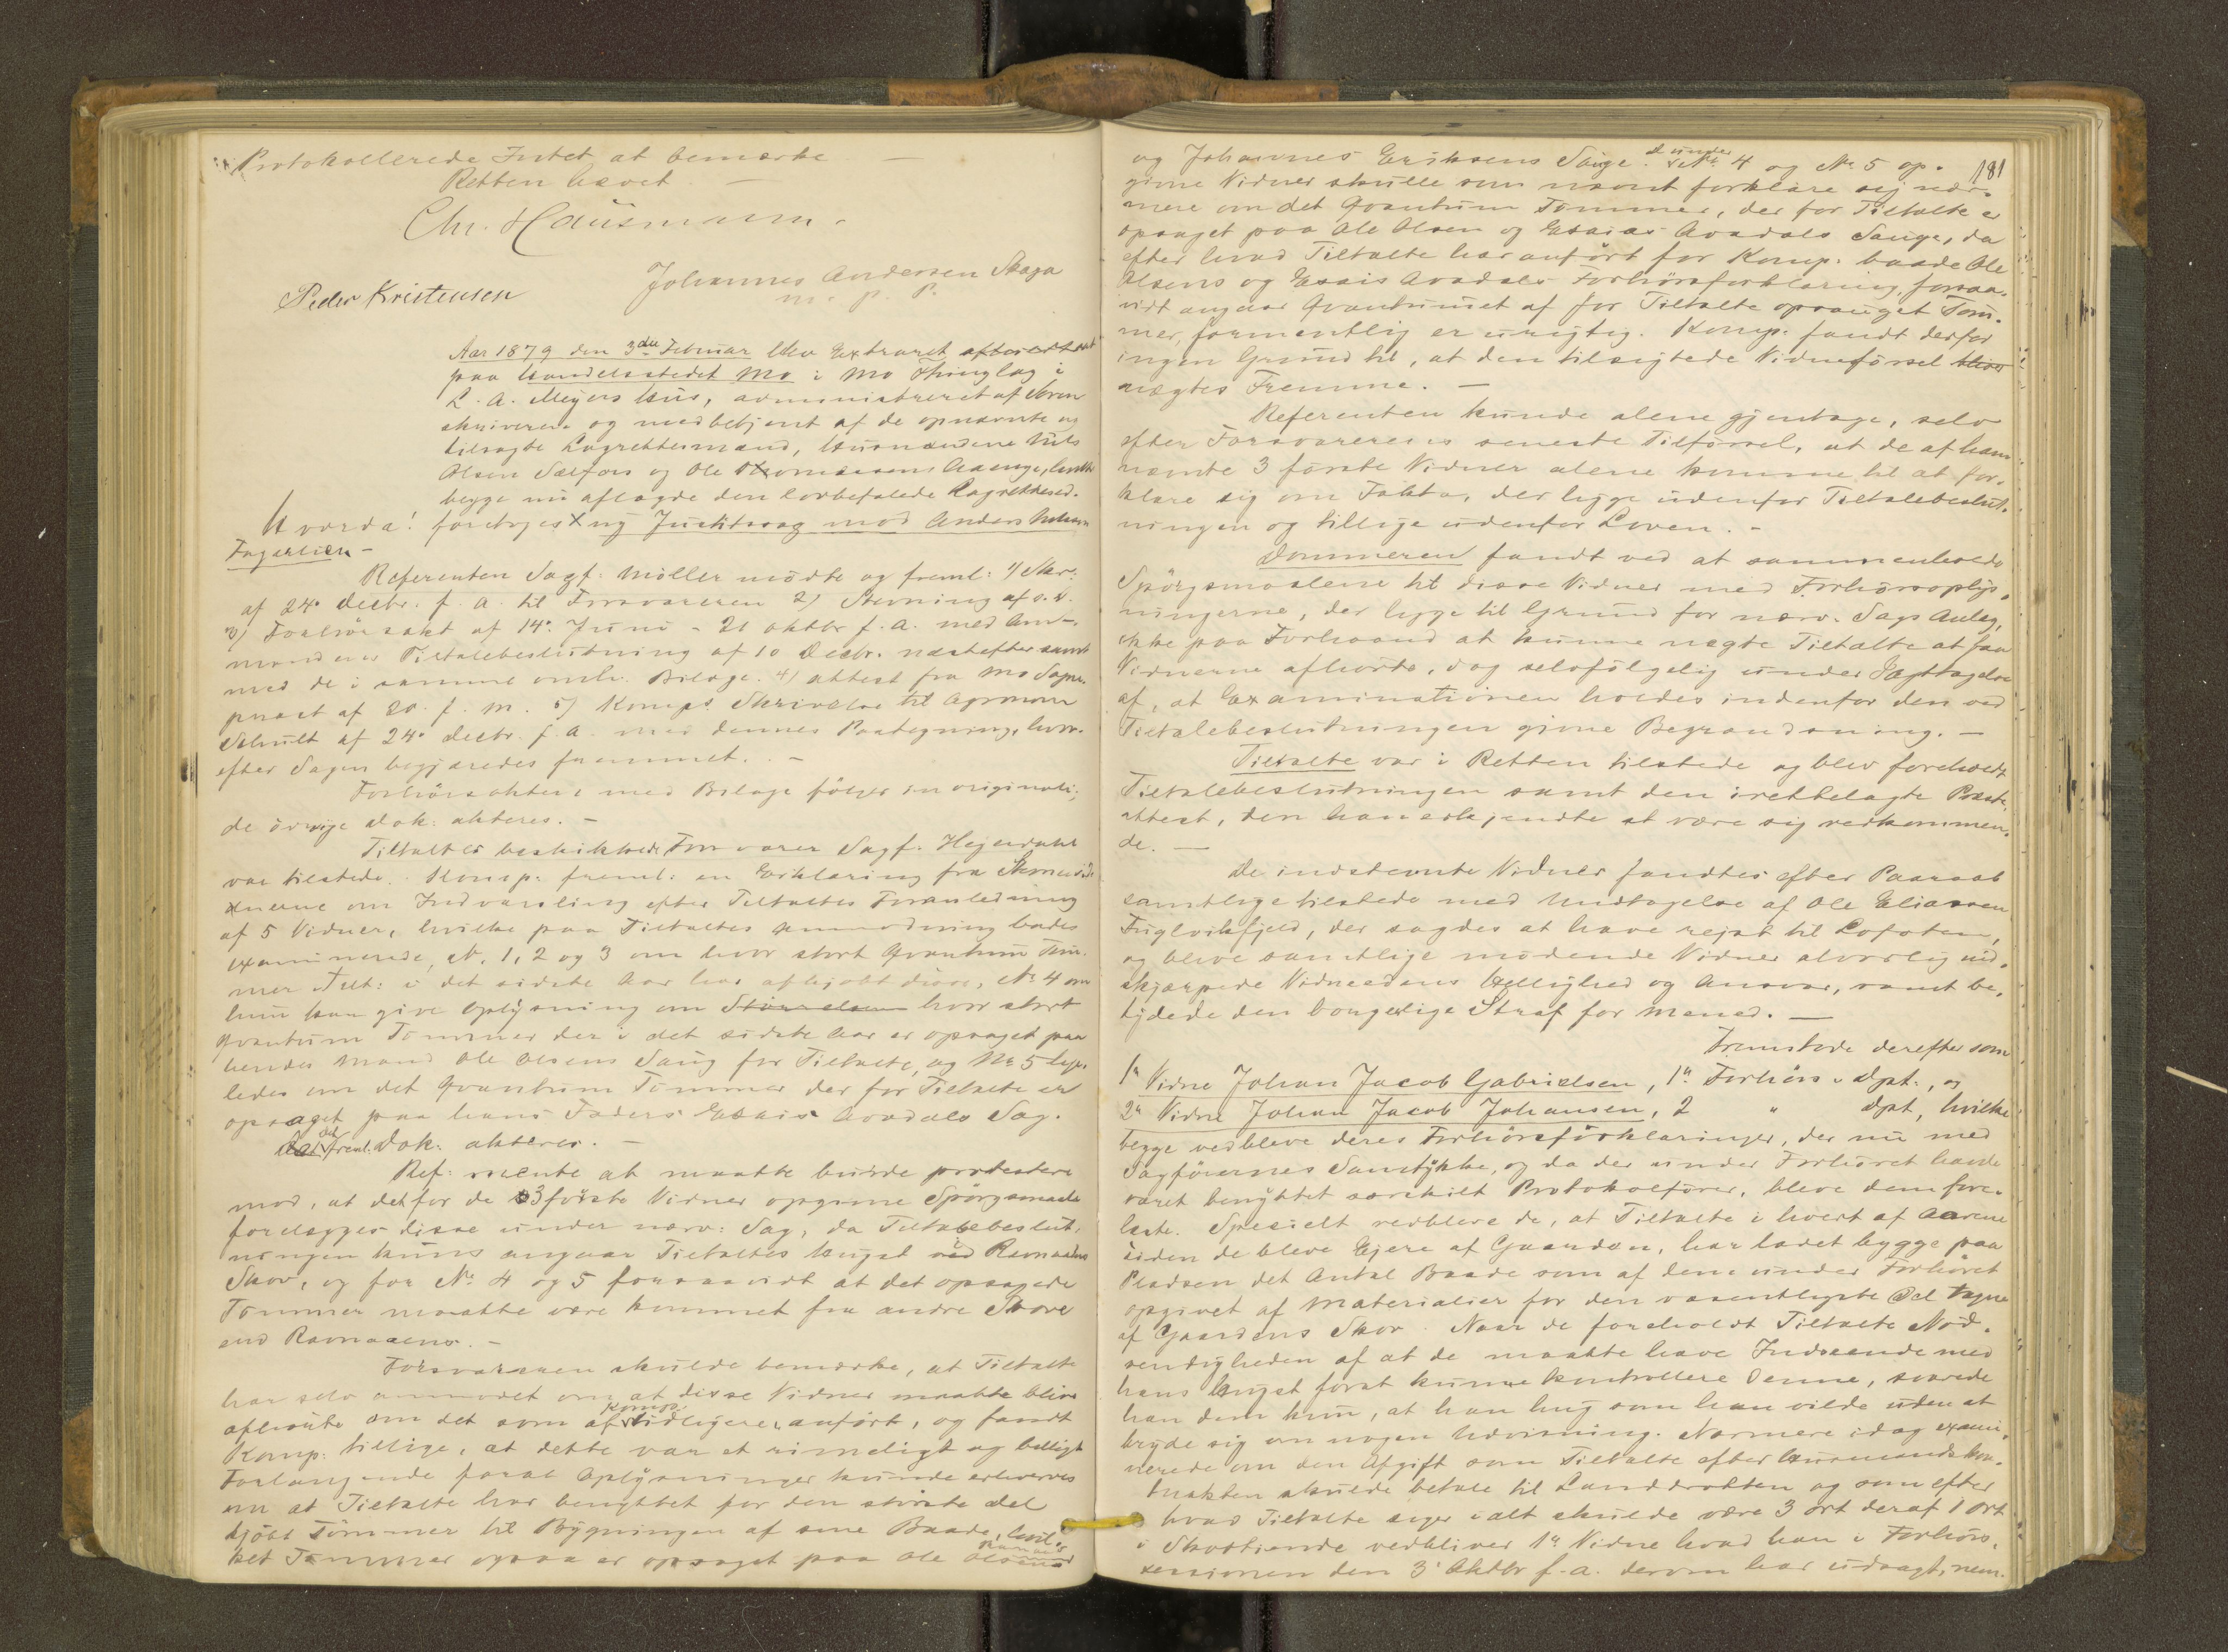 Protokollerede Intet at bemærke
Retten hævet. —
Chr. Hausmann.
Johannes Andersen Skaga
m. p. P.
Peder Kristensen
Aar 1879 den 3die Februar blev Extraret
paa Handelsstedet Mo i Mo Thinglag i
L. A. Meyers Hus, administreret af Soren-
skriveren og medbetjent af de opnævnte og
tilsagte Lagrettesmænd, Husmændene Nils
Olsen Selfors og Ole Thomassens, hvilke
begge nu aflagde den lovbefalede Lagrettesed.
Hvorda! foretoges ny Justitssag mod Anders
Fagerlien —
Referenten Sagf. Møller mødte og freml: 1/ Skr.
af 24. Decbr. f. A. til Forsvareren 2/ Stevning af s. D.
3/ Forhørsakt af 14. Juni - 21 Oktbr f. A. med Amt-
mandens Tiltalebeslutning af 10 Decbr. næstefter samt
med de i samme omh. Bilage. 4/ Attest fra Mo Sogne-
præst af 20. f. M. 5/ Komps. Skrivelse til Agronom
Schult af 24. Decbr. f. A. med dennes Paategning, hvor-
efter Sagen begjæredes fremmet. —
Forhørsakten med Bilage følger in originali;
de øvrige Dok. akteres. —
Tiltaltes beskikkede Forsvarer Sagf. Hejerdahl
var tilstede. Komp. freml: en Erklæring fra Stevnevid-
nerne om Indvarsling efter Tiltaltes Foranledning
af 5 Vidner, hvilke paa Tiltaltes Anmodning bades
examinerede, No. 1, 2 og 3 om hvor stort Qvantum Tøm-
mer Tilt: i det sidste Aar har afkjøbt disse, No 4 om
hun kan give Oplysning om Størrelsen hvor stort
Qvantum Tømmer der i det sidste Aar er opsaget paa
hendes Mand Ole Olsens Saug for Tiltalte, og No 5 lige-
ledes om det Qvantum Tømmer der for Tiltalte er
opsaget paa hans Faders Esais Avadals Sag.
Det freml. Dok. akteres. —
Ref: mente at maatte burde protestere
mod, at det for de 3 første Vidner opgivne Spørgsmaal
forelægges disse under nærv: Sag, da Tiltalebeslut-
ningen kuns angaar Tiltaltes Hugst i Ravnaaens
Skov, og for No. 4 og 5 forsaavidt at det opsagede
Tømmer maatte være kommet fra andre Skove
end Ravnaaens. —
Forsvareren skulde bemærke, at Tiltalte
har selv anmodet om at disse Vidner maatte blive
afhørte om det som af Komp. tidligere anført, og fandt
Komp: tillige, at dette var et rimeligt og billigt
Forlangende forat Oplysninger kunde erhverves
om at Tiltalte har benyttet for den største Del
kjøbt Tømmer til Bygningen af sine Baade, hvil-
ket Tømmer ogsaa er opsaget paa Ole Olsens
181
og Johannes Eriksens Sauge. de under No. 4 og No 5 op-
givne Vidner skulle som nævnt forklare sig nær-
mere om det Qvantum Tømmer, der for Tiltalte er
opsaget paa Ole Olsen og Esaias Avadals Sauge, da
efter hvad Tiltalte har anført for Komp. baade Ole
Olsens og Esais Avadals Forhørsforklaring, forsaa-
vidt angaar Qvantumet af for Tiltalte opsauget Tøm-
mer, formentlig er urigtig. Komp. fandt derfor
ingen Grund til, at den tilsigtede Vidneførsel bliver
nægtes Fremme. —
Referenten kunde alene gjentage, selv
efter Forsvarerens seneste Tilførsel, at de af ham
nævnte 3 første Vidner alene komme til at for-
klare sig om Fakta, der ligge udenfor Tiltalebeslut-
ningen og tillige udenfor Loven. —
Dommeren fandt ved at sammenholde
Spørgsmaalene til disse Vidner med Forhørsoplys-
ningerne, der ligge til Grund for nærv. Sags Anlæg,
ikke paa Forhaand at kunne nægte Tiltalte at faa
Vidnerne afhørte, dog selvfølgelig under Iagttagelse
af, at Examinationen holdes indenfor den ved
Tiltalebeslutningen givne Begrændsning. —
Tiltalte var i Retten tilstede og blev foreholdt
Tiltalebeslutningen samt den irettelagte Præste-
attest, den han erkjendte at være sig vedkommen-
de. —
De indstevnte Vidner fandtes efter Paaraab
samtlige tilstede med Undtagelse af Ole Eliassen
Fuglvikfjeld, der sagdes at have rejst til Lofoten,
og bleve samtlige mødende Vidner alvorlig ind-
skjærpede Vidneedens Hellighed og Ansvar, samt be-
tydede den borgerlige Straf for Mened. —
Fremstode derefter som
1e Vidne Johan Jacob Gabrielsen, 1e Forhørs-Dpt., og
2e Vidne Johan Jacob Johansen, 2 " Dpt, hvilke
begge vedbleve deres Forhørsforklaringer, der nu med
Sagførernes Samtykke, og da der under Forhøret havde
været benyttet særskilt Protokolfører, bleve dem fore-
læste. Specielt vedbleve de, at Tiltalte i hvert af Aarene
siden de bleve Ejere af Gaarden, har ladet bygge paa
Pladsen det Antal Baade som af dem under Forhøret
opgivet af Materialier for den væsentligste Del tagne
af Gaardens Skov. Naar de foreholdt Tiltalte Nød-
vendigheden af at de maatte have Indseende med
hans Hugst forat kunne kontrollere Denne, svarede
han dem kun, at han hug som han vilde uden at
bryde sig om nogen Udvisning. Nærmere idag exami-
nerede om den Afgift som Tiltalte efter Husmandskon-
trakten skulde betale til Landdrotten og som efter
hvad Tiltalte siger ialt skulde være 3 Ort deraf 1 Ort
i Skovtiende vedbliver 1e Vidne hvad han i Forhørs-
sessionen den 3' Oktbr f. A. derom har udsagt, nem-